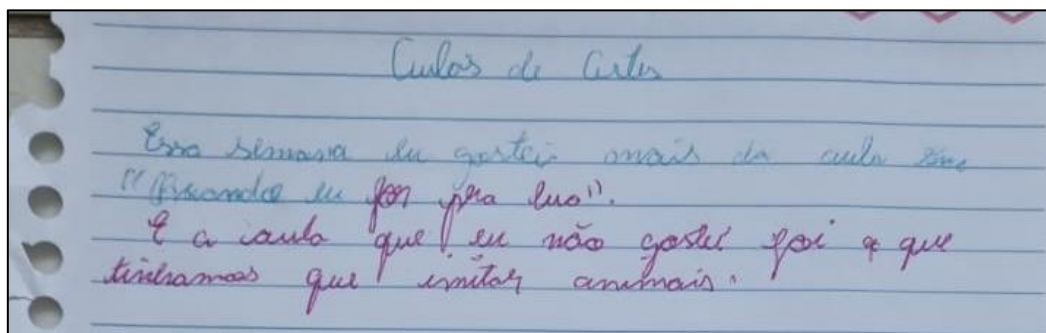 Aulas de Artes
Essa semana eu gostei mais da aula zine
"Quando eu for pra lua".
E a aula que eu não gostei foi a que
tinhamos que imitar animais.